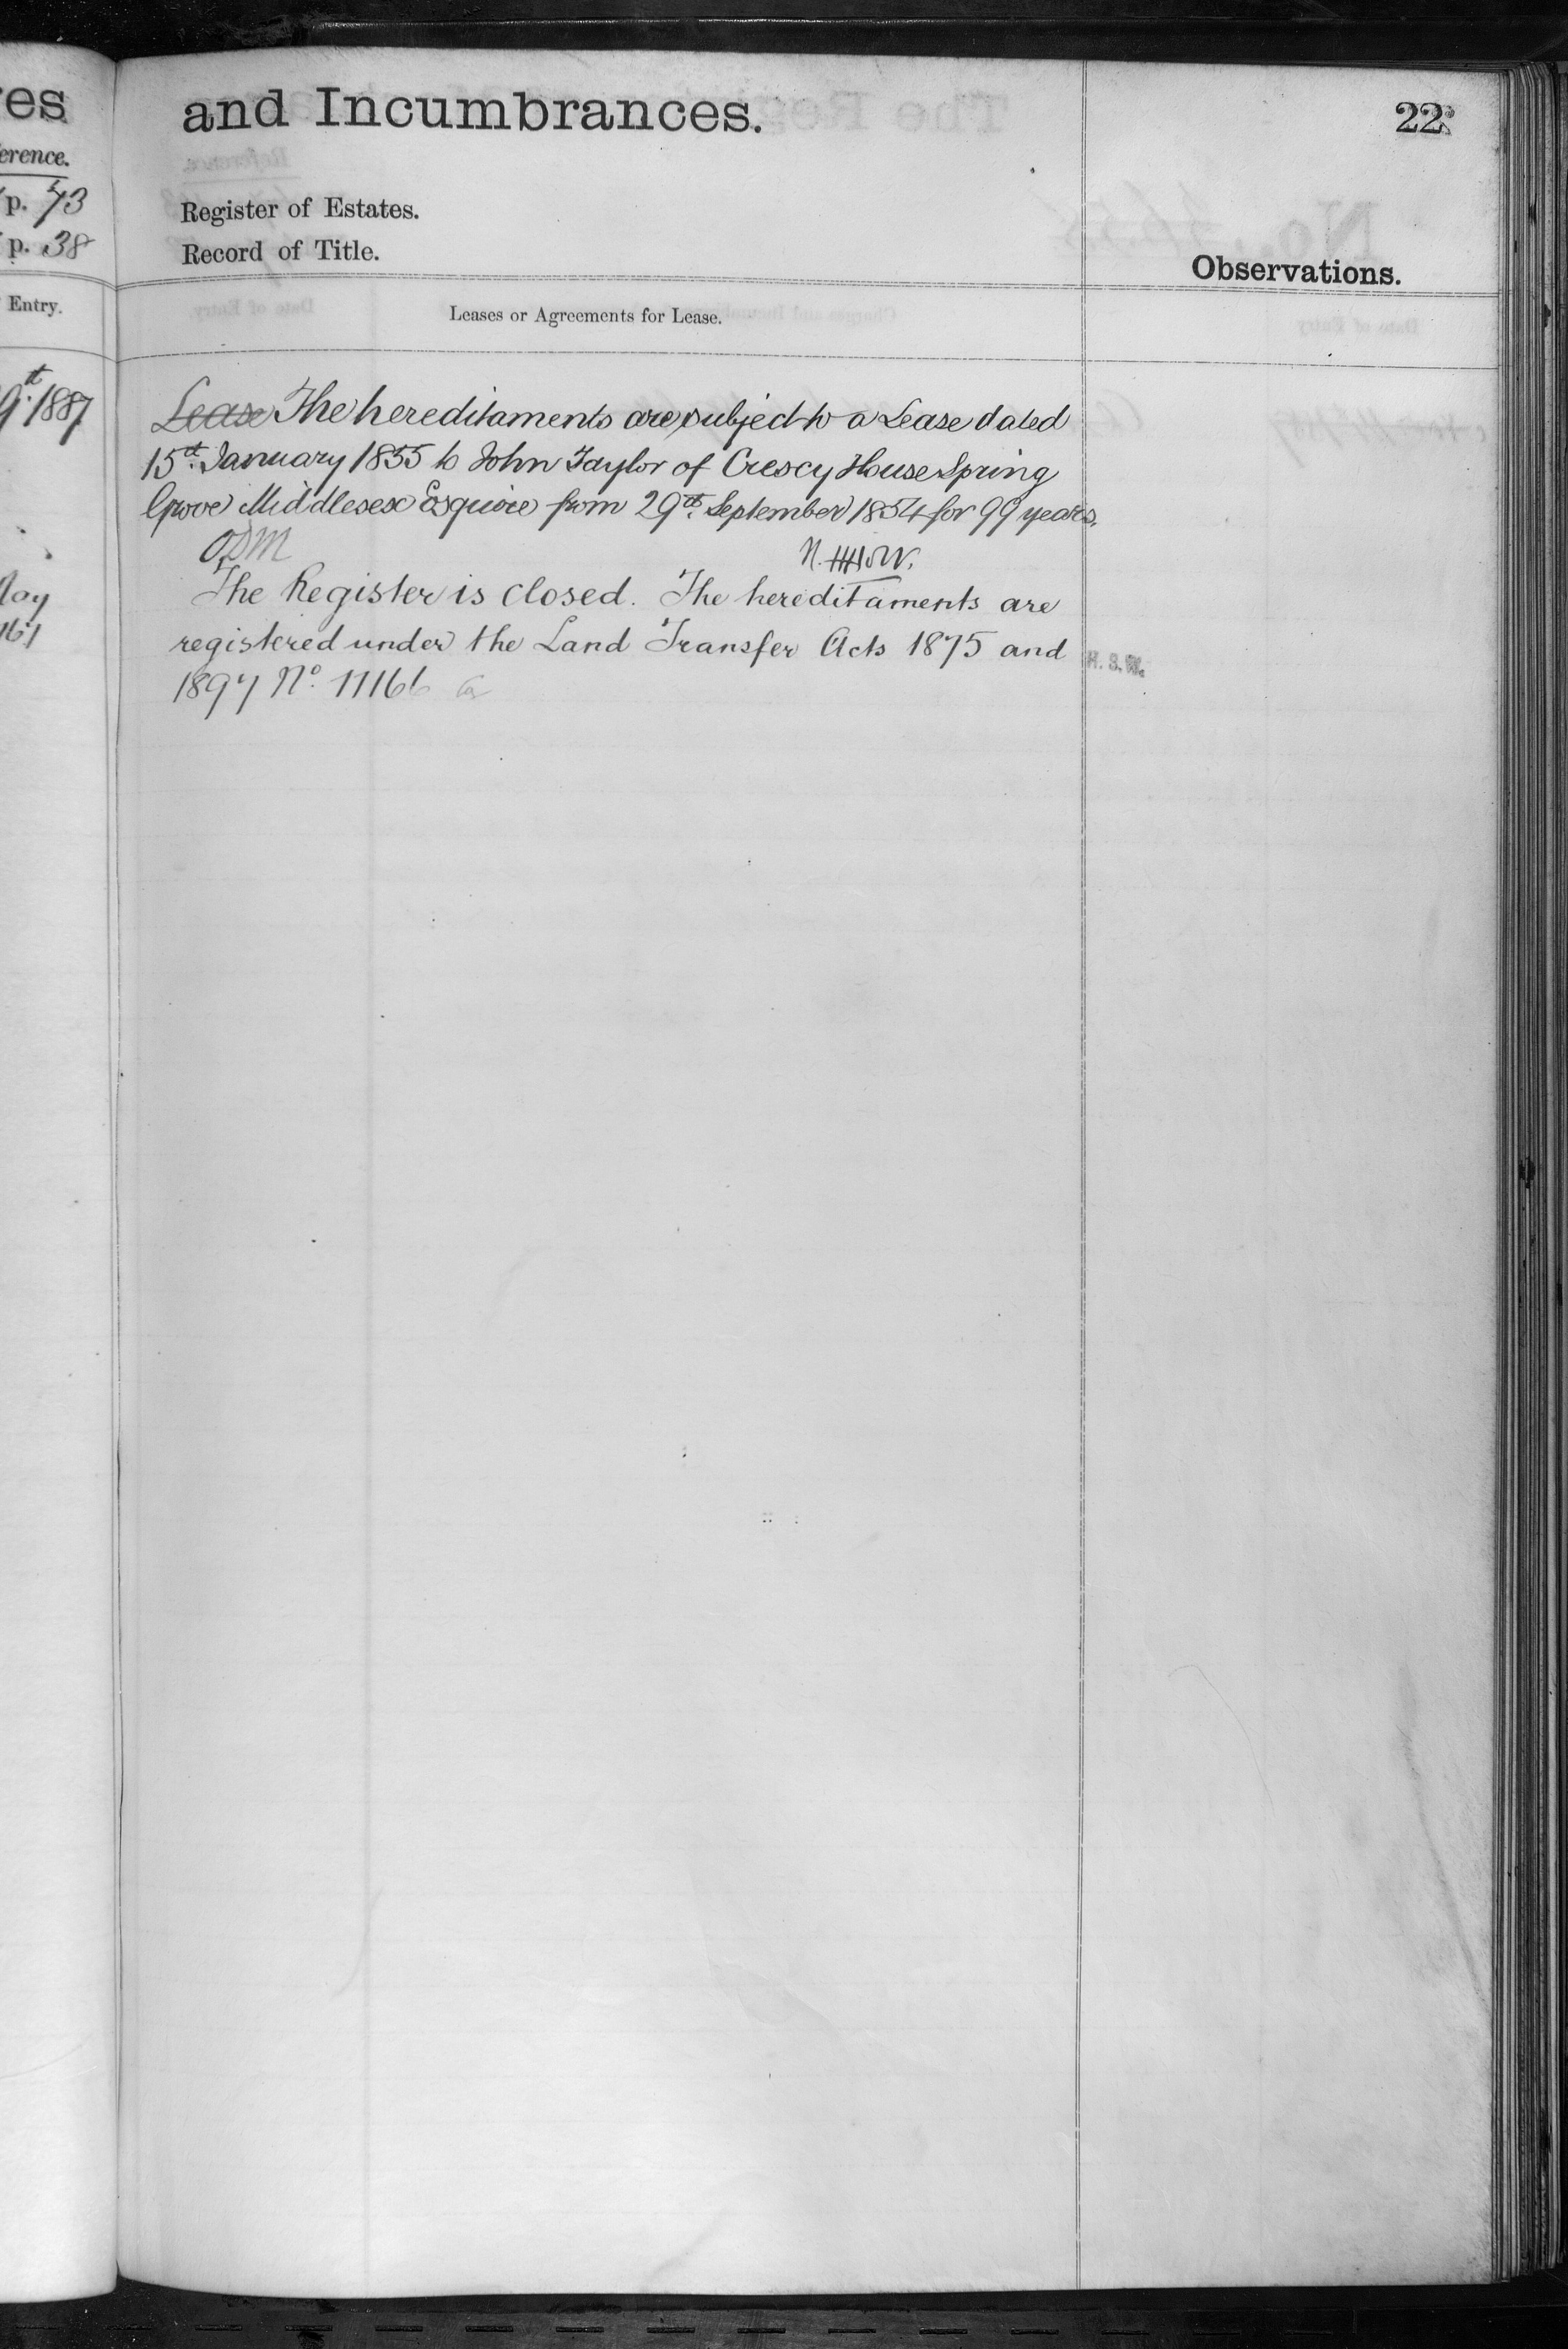 and Incumbrances.
22
Register of Estates.
Record of Title.
Observations.
Leases or Agreements for Lease.
Lease The hereditaments are subject to a Lease dated
15th January 1855 to John Taylor of Crescy House Spring
Grove Middlesex Esquire from 29th September 1854 for 99 years.
The Register is closed. The hereditaments are
registered under the Land Transfer Acts 1875 and
H.S.W.
1897 No. 11166
es
erence.
p. 73
p. 38
Entry.
9th 1887